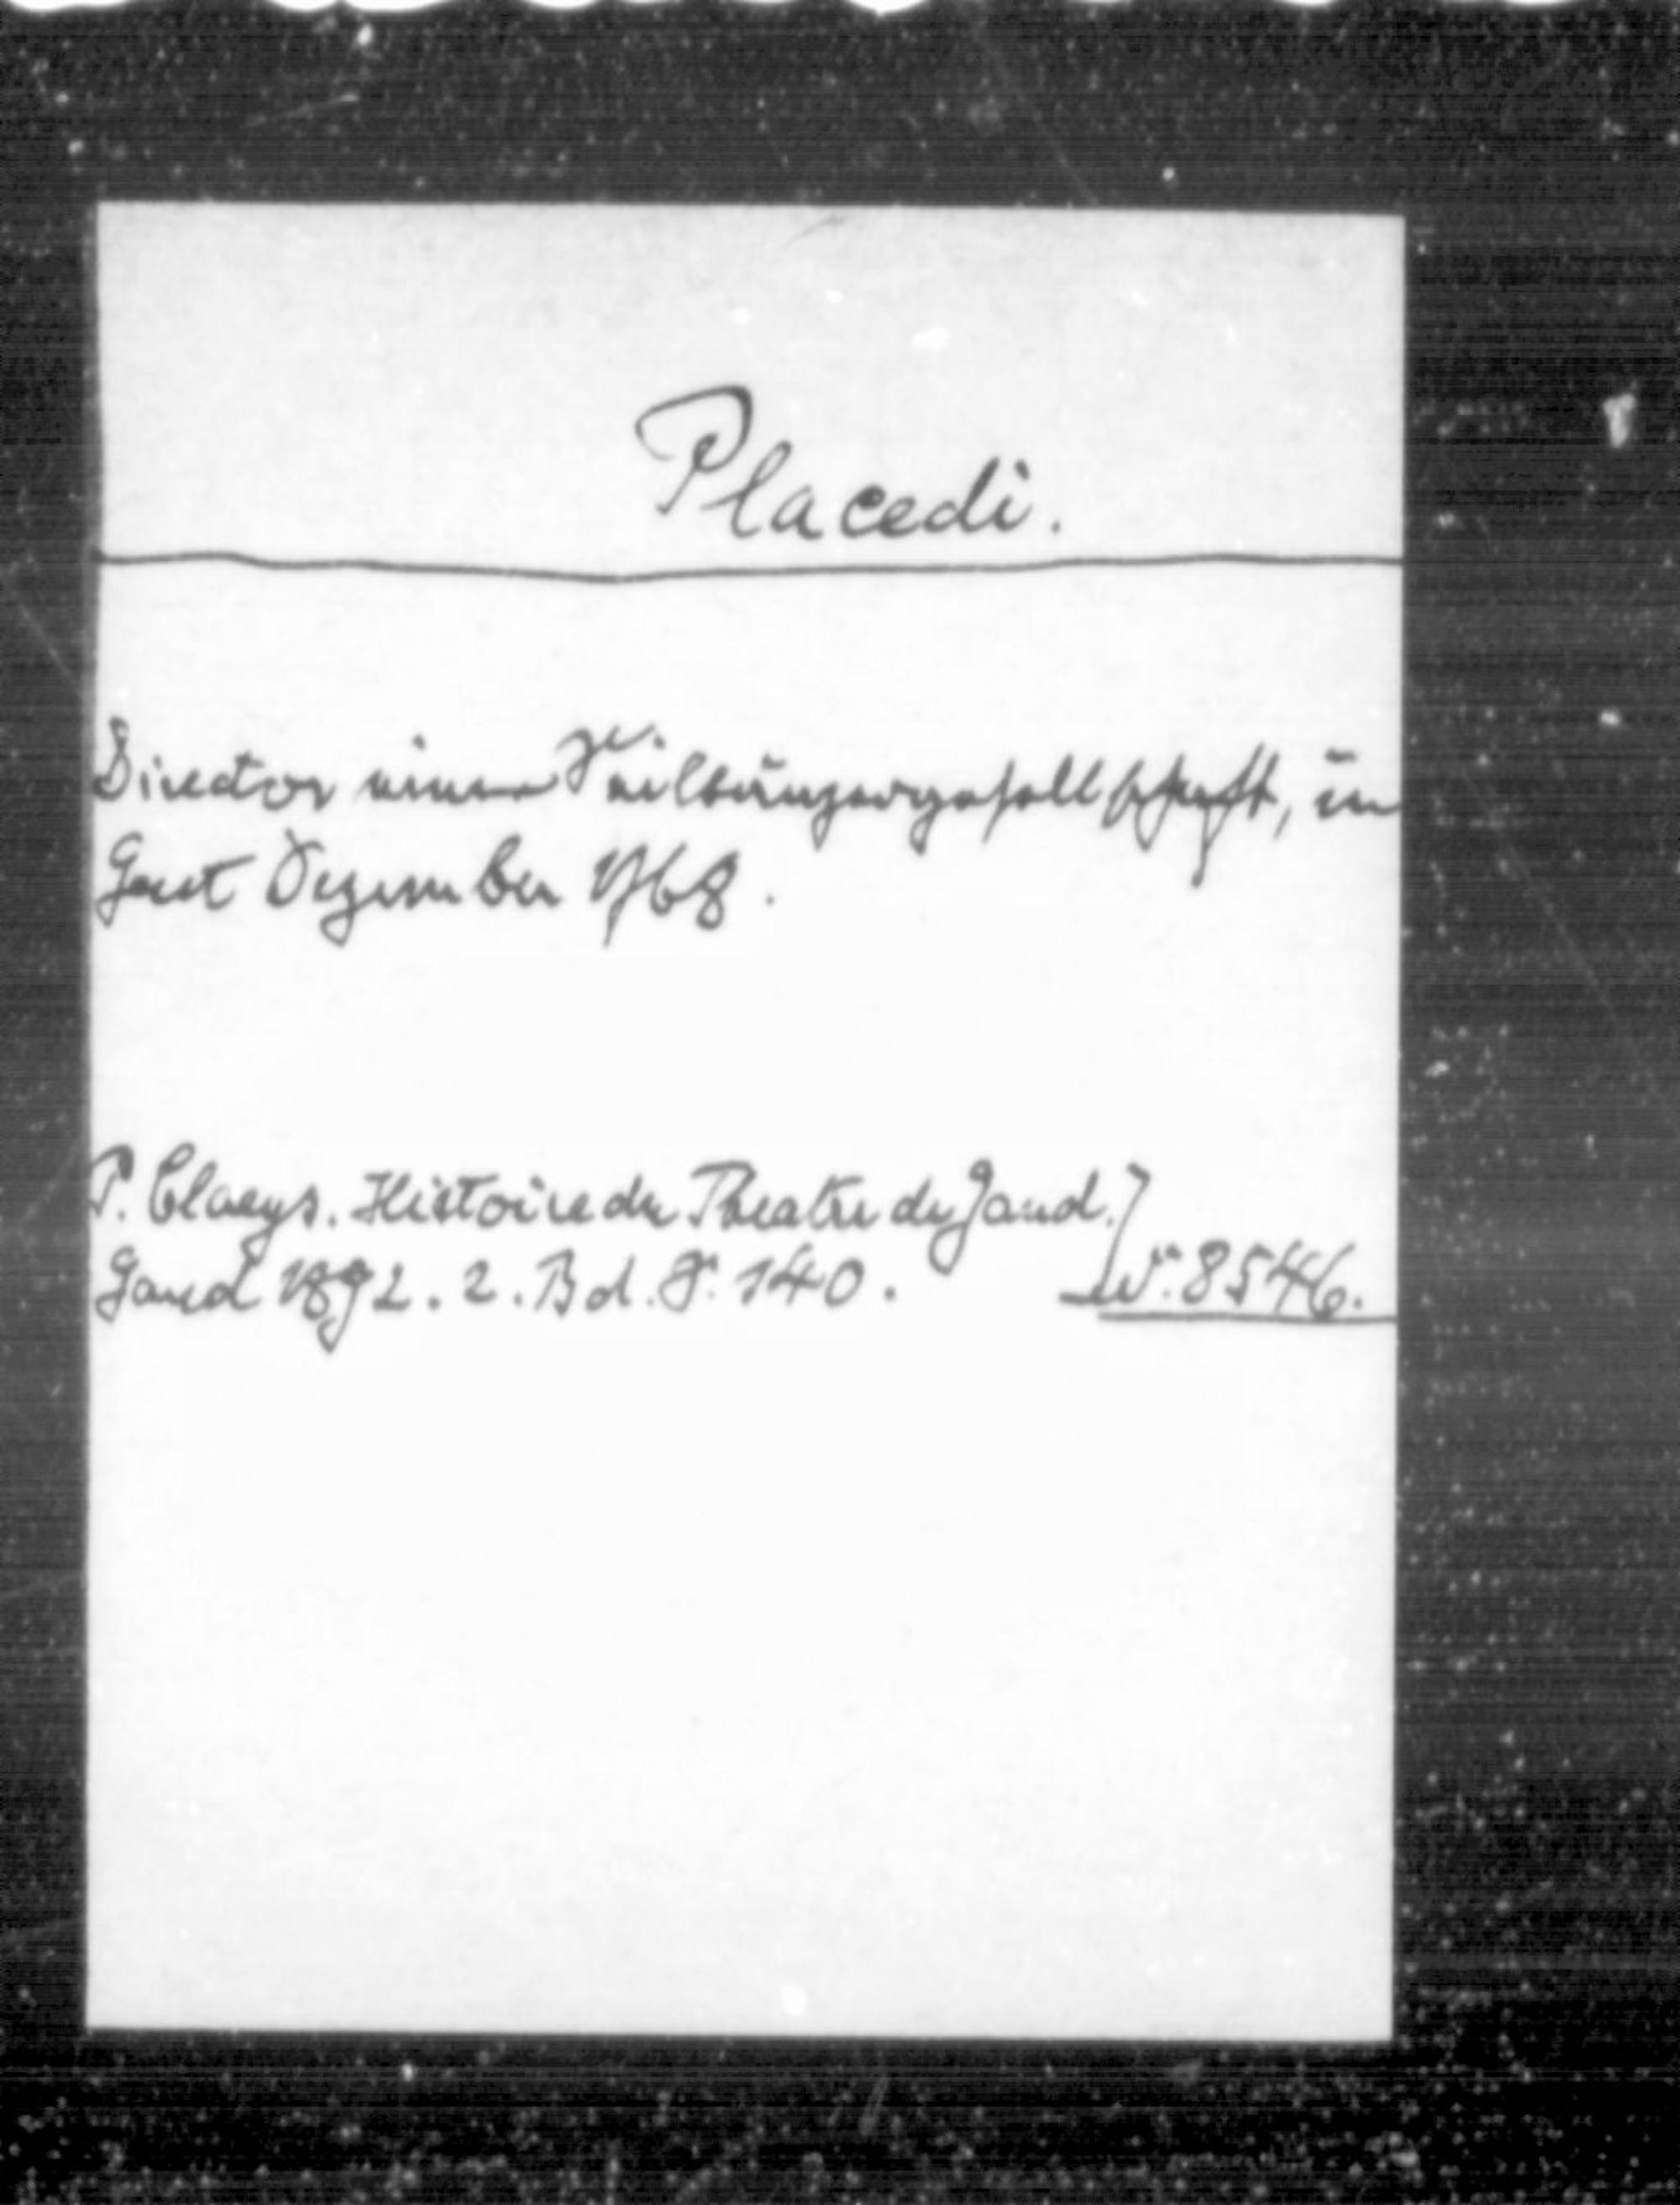 Placedi.
Director einer Seiltänzergesellschaft, in
Gent Dezember 1768.
P. Claeys. Histoire du Theatre de Gand.
Gand 1892. 2. Bd. S. 140. W. 8546.